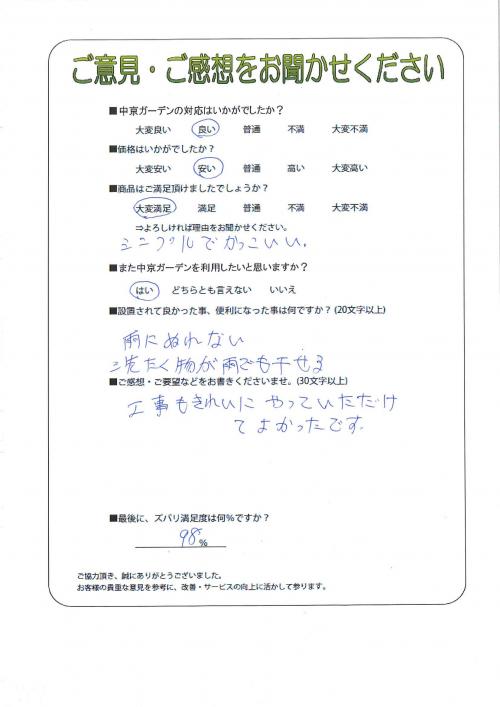 ご意見・ご感想をお聞かせください
■中京ガーデンの対応はいかがでしたか？
大変良い 良い 普通 不満 大変不満
■価格はいかがでしたか？
大変安い 安い 普通 高い 大変高い
■商品はご満足頂けましたでしょうか？
大変満足 満足 普通 不満 大変不満
⇒よろしければ理由をお聞かせください。
シンプルでかっこいい。
■また中京ガーデンを利用したいと思いますか？
はい どちらとも言えない いいえ
■設置されて良かった事、便利になった事は何ですか？(20文字以上)
雨にぬれない
洗たく物が雨でも干せる
■ご感想・ご要望などをお書きくださいませ。(30文字以上)
工事もきれいにやっていただけ
てよかったです。
■最後に、ズバリ満足度は何％ですか？
98％
ご協力頂き、誠にありがとうございました。
お客様の貴重な意見を参考に、改善・サービスの向上に活かして参ります。